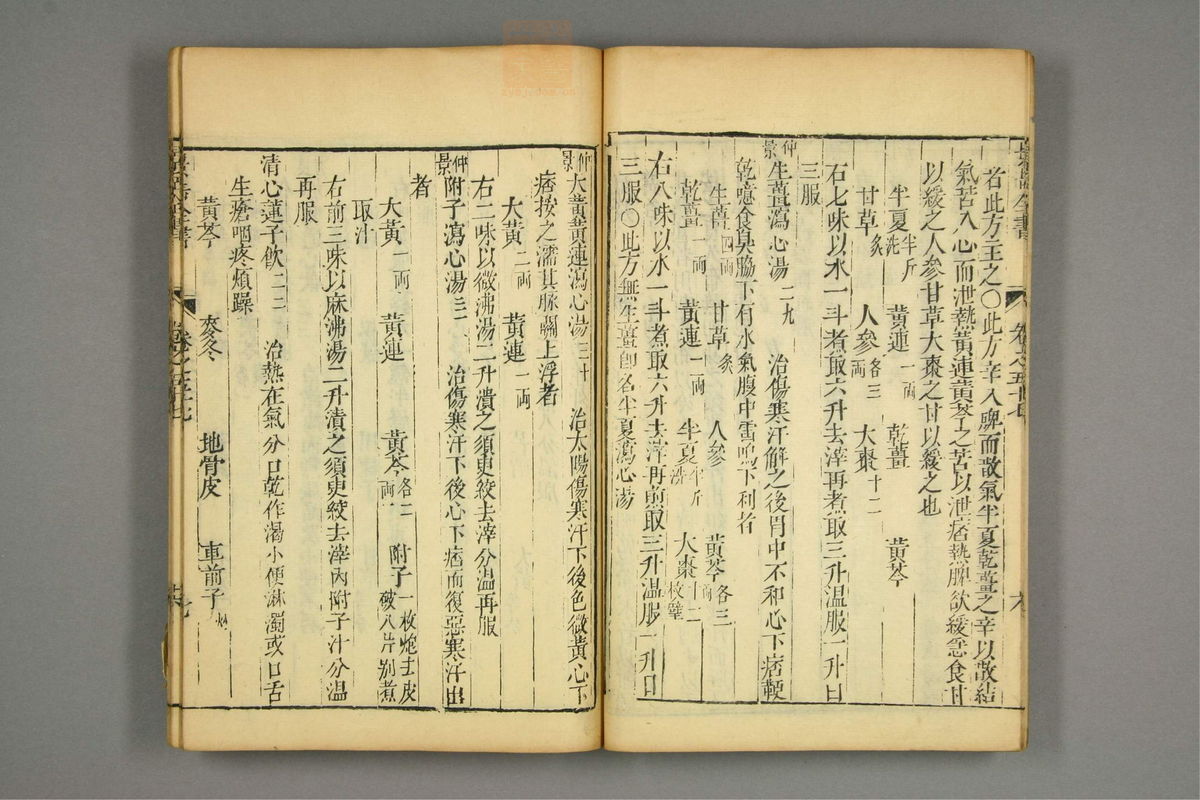 者此方主之〇此方辛入脾而散氣半夏乾薑之辛以散結
氣苦入心而泄熱黃連黃芩之苦以泄痞熱脾欲緩急食甘
以緩之人參甘草大棗之甘以緩之也
半夏半斤洗 黃連一両 乾薑 黃芩
甘草炙 人參各三両 大棗十二
右七味以水一斗煮取六升去滓再煮取三升温服一升日
三服
仲景生薑瀉心湯二九 治傷寒汗解之後胃中不和心下痞鞕
乾噫食臭脇下有水氣腹中雷鳴下利者
生薑四両 甘草炙 人參 黃芩各三両
乾薑一両 黃連一両 半夏半斤洗 大棗十二枚擘
右八味以水一斗煮取六升去滓再煎取三升温服一升日
三服〇此方無生薑即名半夏瀉心湯
仲景大黃黃連瀉心湯三十 治太陽傷寒汗下後色微黃心下
痞按之濡其脉關上浮者
大黃二両 黃連一両
右二味以微沸湯二升漬之須臾絞去滓分温再服
仲景附子瀉心湯三一 治傷寒汗下後心下痞而復惡寒汗出
者
大黃二両 黃連 黃芩各一両 附子一枚炮去皮破八片别煮
取汁
右前三味以麻沸湯二升漬之須臾絞去滓內附子汁分温
再服
清心蓮子飲三二 治熱在氣分口乾作渴小便淋濁或口舌
生瘡咽疼煩躁
黃芩 麥冬 地骨皮 車前子炒
卷之五十七